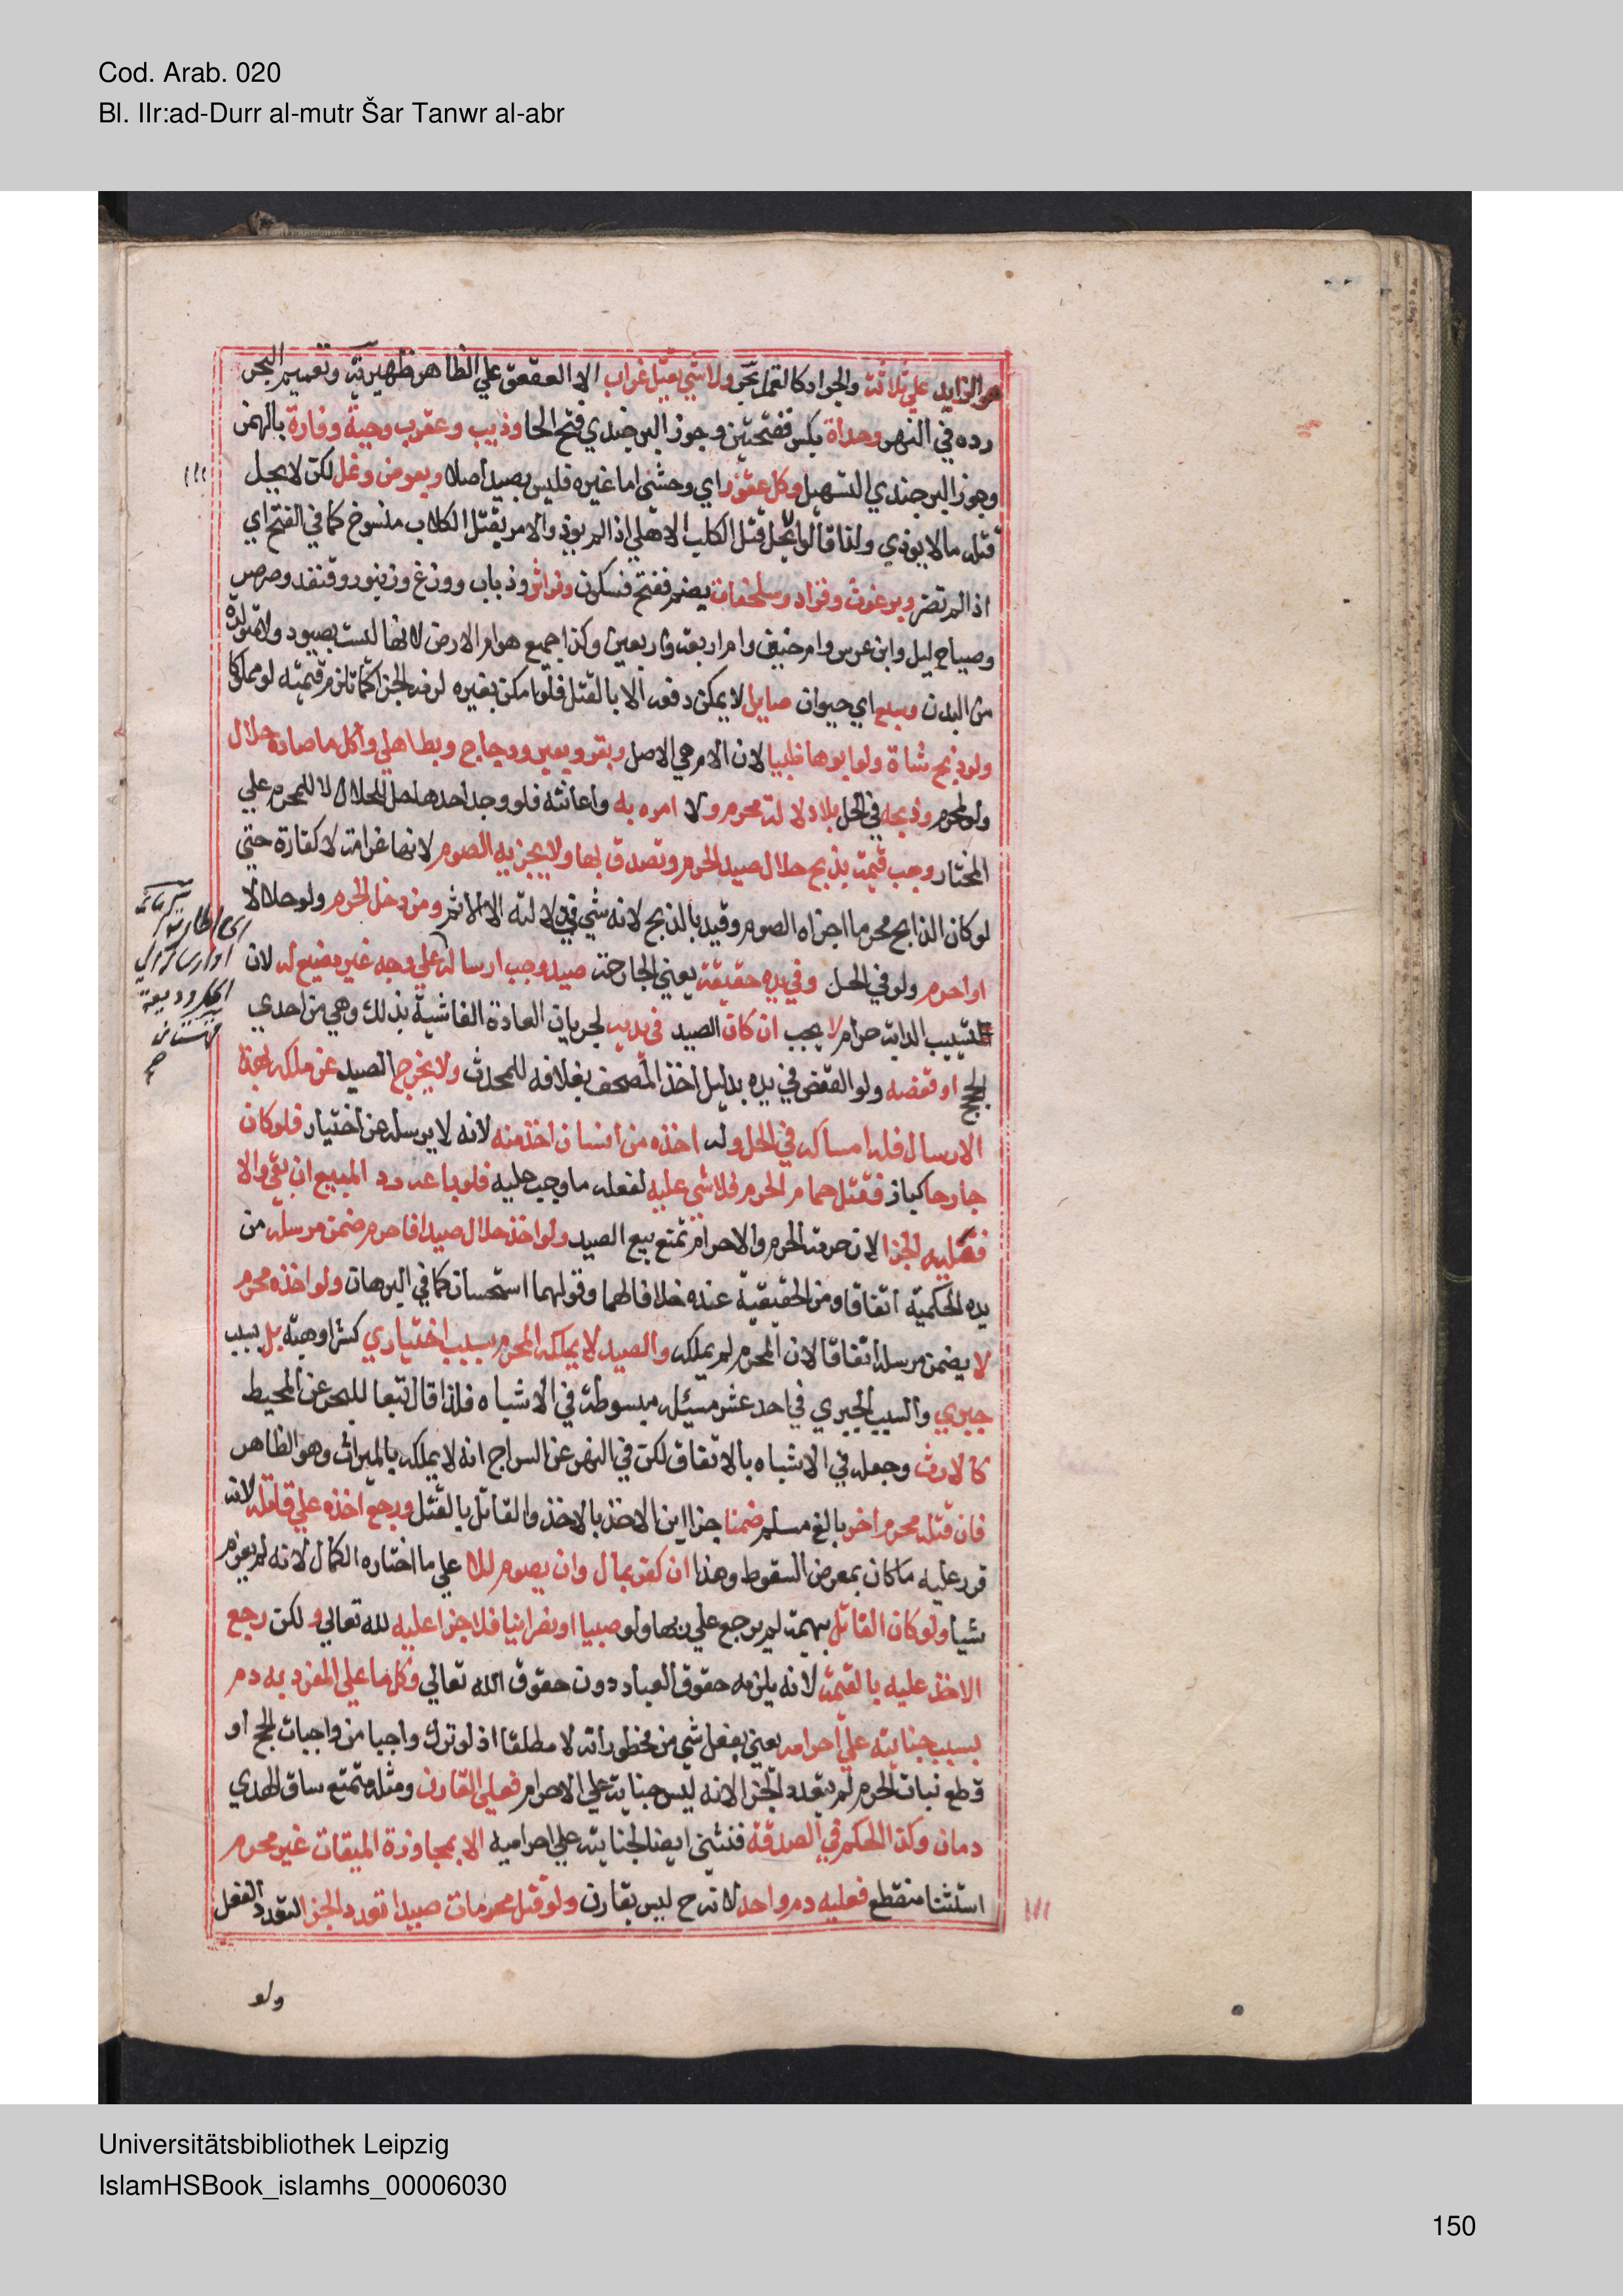 Cod. Arab. 020
Bl. IIr:ad-Durr al-mutr Šar Tanwr al-abr
هو الزايد علي ثلاثة والجراد كالقمل بحر ولا شي بقتل غراب الا العقعق علي الظاهر ظهيرية وتعميم البحر
رده في النهر وحداة بكسر ففتحتين وجوز البرجندي فتح الحا وذيب وعقرب وحية وفارة بالهمز
وجوز البرجندي التسهيل وكلب عقور اي وحشي اما غيره فليس بصيد اصلا وبعوض ونمل لكن لا يحل
قتله ما لا يوذي ولذا قالوا لم يحل قتل الكلب الاهلي اذا لم يوذ والامر بقتل الكلاب منسوخ كما في الفتح اي
اذا لم تضر وبرغوث وقراد وسلحفات بضم ففتح فسكون وفراش وذباب ووزغ وزنبور وقنفد وصرصر
وصياح ليل وابن عرس وام حنين وام اربعة واربعين وكذا جميع هوام الارض لانها ليست بصيود ولا متولدة
من البدن وسبع اي حيوان صايل لا يمكن دفعه الا بالقتل فلو امكن بغيره لزمه الجزا كما تلزم قيمته لو مملوكا
ولو ذبح شاة ولو ابوها ظبيا لان الام هي الاصل وبقر وبعير ودجاج وبط اهلي واكل ما صاده حلال
ولو لمحرم وذبحه في الحل بلا دلالة محرم ولا امره به واعانته فلو وجد احدهما حل للحلال لا للمحرم علي
المختار وجب قيمة بذبح حلال صيد الحرم وتصدق بها ولا يجزيه الصوم لانها غرامة لا كفارة حتي
لو كان الذابح محرما اجزاه الصوم وقيد بالذبح لانه لا شي في دلالته الا الاثم ومن دخل الحرم ولو حلالا
او احرم ولو في الحل وفي يده حقيقة يعني الجارحة صيد وجب ارساله علي وجه غير مضيع له لان
تسييب الدابة حرام لا يجب ان كان الصيد في بيته لجريان العادة الفاشية بذلك وهي من احدي
الحجج او قفصه ولو القفص في يده بدليل اخذ المصحف بغلافه للمحدث ولا يخرج الصيد عن ملكه بهذا
الارسال فله امساكه في الحل وله اخذه من انسان اخذ منه لانه لا يرسله عن اختيار فلو كان
جارحا كباز فقتل حمام الحرم فلا شي عليه لفعله ما وجب عليه فلو باعه رد المبيع ان بقي والا
فعليه الجزا لان حرمة الحرم والاحرام تمنع بيع الصيد ولو اخذ حلال صيدا فاحرم ضمن مرسله من
يده الحكمية اتفاقا ومن الحقيقية عنده خلافا لهما وقولهما استحسان كما في البرهان ولو اخذه محرم
لا يضمن مرسله اتفاقا لان المحرم لم يملكه والصيد لا يملكه المحرم بسبب اختياري كشرا وهبة بل بسبب
جبري والسبب الجبري في احد عشر مسئلة مبسوطة في الاشباه فلذا قال تبعا للبحر عن المحيط
كالارث وجعله في الاشباه بالاتفاق لكن في النهر عن السراج انه لا يملكه بالميراث وهو الظاهر
فان قتله محرم اخر بالغ مسلم ضمنا جزاين الاخذ بالاخذ والقاتل بالقتل ورجع اخذه علي قاتله لانه
قرر عليه ما كان بمعرض السقوط وهذا ان كفر بمال وان بصوم فلا علي ما اختاره الكمال لانه لم يغرم
شيا ولو كان القاتل بهيمة لم يرجع علي ربها ولو صبيا او نصرانيا فلا جزا عليه لله تعالي ولكن رجع
الاخذ عليه بالقيمة لانه يلزمه حقوق العباد دون حقوق الله تعالي وكل ما علي المفرد به دم
بسبب جنايته علي احرامه يعني بفعل شي من محظوراته لا مطلقا اذ لو ترك واجبا من واجبات الحج او
قطع نبات الحرم لم يتعدد الجزا لانه ليس جناية علي الاحرام فعلي القارن ومثله متمتع ساق الهدي
دمان وكذا الحكم في الصدقة فتثني ايضا لجنايته علي احراميه الا بمجاوزة الميقات غير محرم
استثنا منقطع فعليه دم واحد لانه ح ليس بقارن ولو قتل محرمان صيدا تعدد الجزا لتعدد الفعل
ولو
Universitätsbibliothek Leipzig
IslamHSBook_islamhs_00006030
150